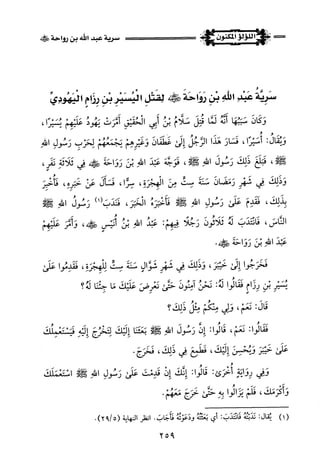 اللؤلؤ المكنون
سرية عبد الله بن رواحة ﷺ
سَرِيَّةُ عَبْدِ اللهِ بْنِ رَوَاحَةَ ﷺ لِقَتْلِ الْيُسَيْرِ بْنِ رِزَامٍ الْيَهُودِيِّ
وَكَانَ سَبَبُهَا أَنَّهُ لَمَّا قُتِلَ سَلَّامُ بْنُ أَبِي الْحُقَيْقِ أَمَّرَتْ يَهُودُ عَلَيْهِمْ يُسَيْرًا،
وَيُقَالُ: أُسَيْرًا، فَسَارَ هَذَا الرَّجُلُ إِلَى غَطَفَانَ وَغَيْرِهِمْ يَجْمَعُهُمْ لِحَرْبِ رَسُولِ اللهِ
ﷺ، فَبَلَغَ ذَلِكَ رَسُولَ اللهِ ﷺ، فَوَجَّهَ عَبْدَ اللهِ بْنَ رَوَاحَةَ ﷺ فِي ثَلَاثَةِ نَفَرٍ،
وَذَلِكَ فِي شَهْرِ رَمَضَانَ سَنَةَ سِتٍّ مِنَ الْهِجْرَةِ، سِرًّا، فَسَأَلَ عَنْ خَبَرِهِ، فَأُخْبِرَ
بِذَلِكَ، فَقَدِمَ عَلَى رَسُولِ اللهِ ﷺ فَأَخْبَرَهُ الْخَبَرَ، فَنَدَبَ(١) رَسُولُ اللهِ ﷺ
النَّاسَ، فَانْتَدَبَ لَهُ ثَلَاثُونَ رَجُلًا فِيهِمْ: عَبْدُ اللهِ بْنُ أُنَيْسٍ ﷺ، وَأَمَّرَ عَلَيْهِمْ
عَبْدَ اللهِ بْنَ رَوَاحَةَ ﷺ.
فَخَرَجُوا إِلَى خَيْبَرَ، وَذَلِكَ فِي شَهْرِ شَوَّالٍ سَنَةَ سِتٍّ لِلْهِجْرَةِ، فَقَدِمُوا عَلَى
يُسَيْرِ بْنِ رِزَامٍ فَقَالُوا لَهُ: نَحْنُ آمِنُونَ حَتَّى نَعْرِضَ عَلَيْكَ مَا جِئْنَا لَهُ؟
قَالَ: نَعَمْ، وَلِي مِنْكُمْ مِثْلُ ذَلِكَ؟
فَقَالُوا: نَعَمْ، قَالُوا: إِنَّ رَسُولَ اللهِ ﷺ بَعَثَنَا إِلَيْكَ لِتَخْرُجَ إِلَيْهِ فَيَسْتَعْمِلُكَ
عَلَى خَيْبَرَ وَيُحْسِنَ إِلَيْكَ، فَطَمِعَ فِي ذَلِكَ، فَخَرَجَ.
وَفِي رِوَايَةٍ أُخْرَى: قَالُوا: إِنَّكَ إِنْ قَدِمْتَ عَلَى رَسُولِ اللهِ ﷺ اسْتَعْمَلَكَ
وَأَكْرَمَكَ، فَلَمْ يَزَالُوا بِهِ حَتَّى خَرَجَ مَعَهُمْ.
(١) يُقَالُ: نَدَبْتُهُ فَانْتَدَبَ: أي بَعَثْتُهُ وَدَعَوْتُهُ فَأَجَابَ. انظر النهاية (٢٩/٥).
٢٥٩